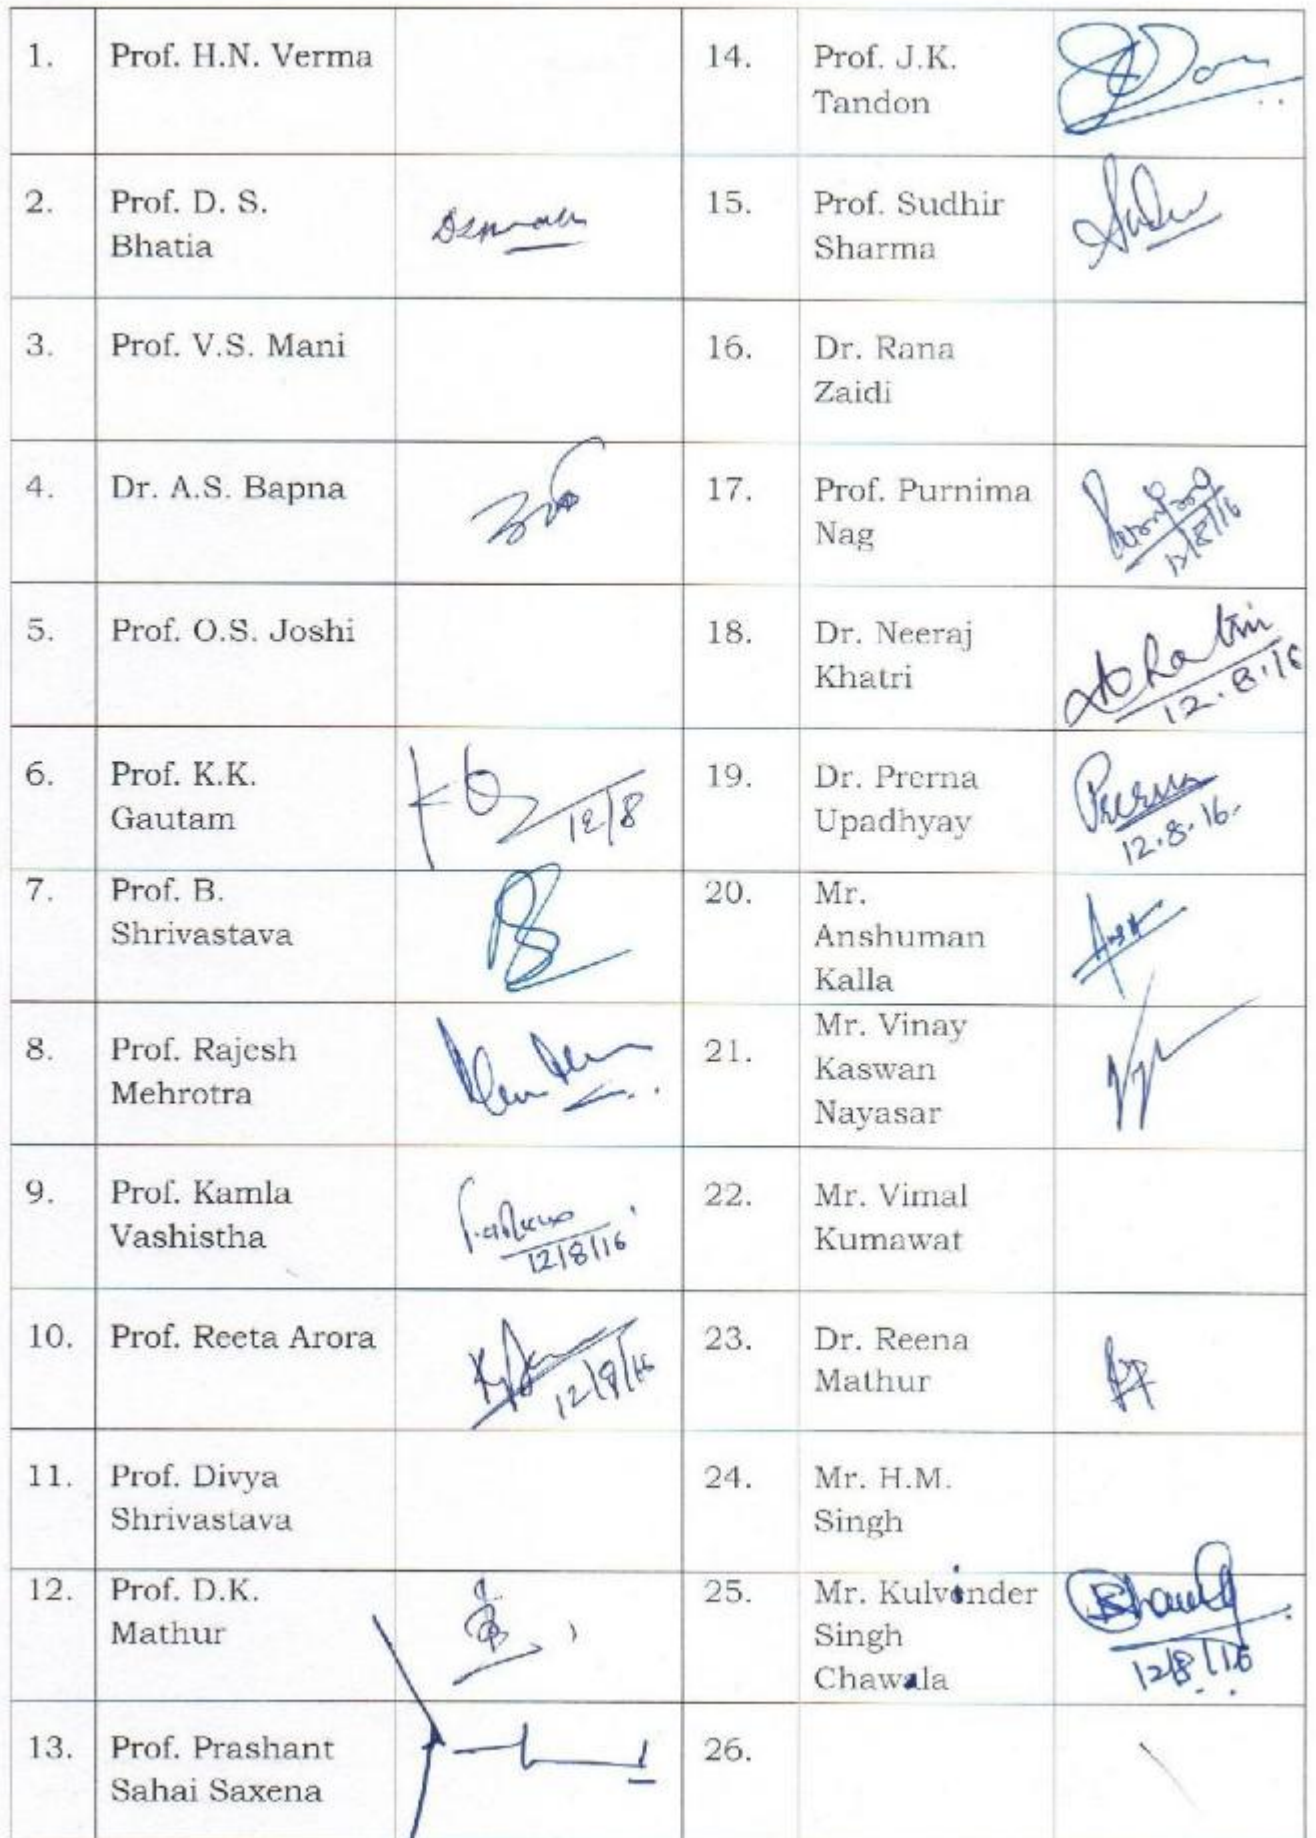 1. Prof. H.N. Verma
14. Prof. J.K.
Tandon
2. Prof. D. S.
Bhatia
15. Prof. Sudhir
Sharma
3. Prof. V.S. Mani
16. Dr. Rana
Zaidi
4. Dr. A.S. Bapna
17. Prof. Purnima
Nag
12/8/16
5. Prof. O.S. Joshi
18. Dr. Neeraj
Khatri
12.8.16
6. Prof. K.K.
Gautam
12/8
19. Dr. Prerna
Upadhyay
Prerna
12.8.16.
7. Prof. B.
Shrivastava
20. Mr.
Anshuman
Kalla
8. Prof. Rajesh
Mehrotra
21. Mr. Vinay
Kaswan
Nayasar
9. Prof. Kamla
Vashistha
12/8/16
22. Mr. Vimal
Kumawat
10. Prof. Reeta Arora
12/8/16
23. Dr. Reena
Mathur
11. Prof. Divya
Shrivastava
24. Mr. H.M.
Singh
12. Prof. D.K.
Mathur
25. Mr. Kulvinder
Singh
Chawala
12/8/16
13. Prof. Prashant
Sahai Saxena
26.